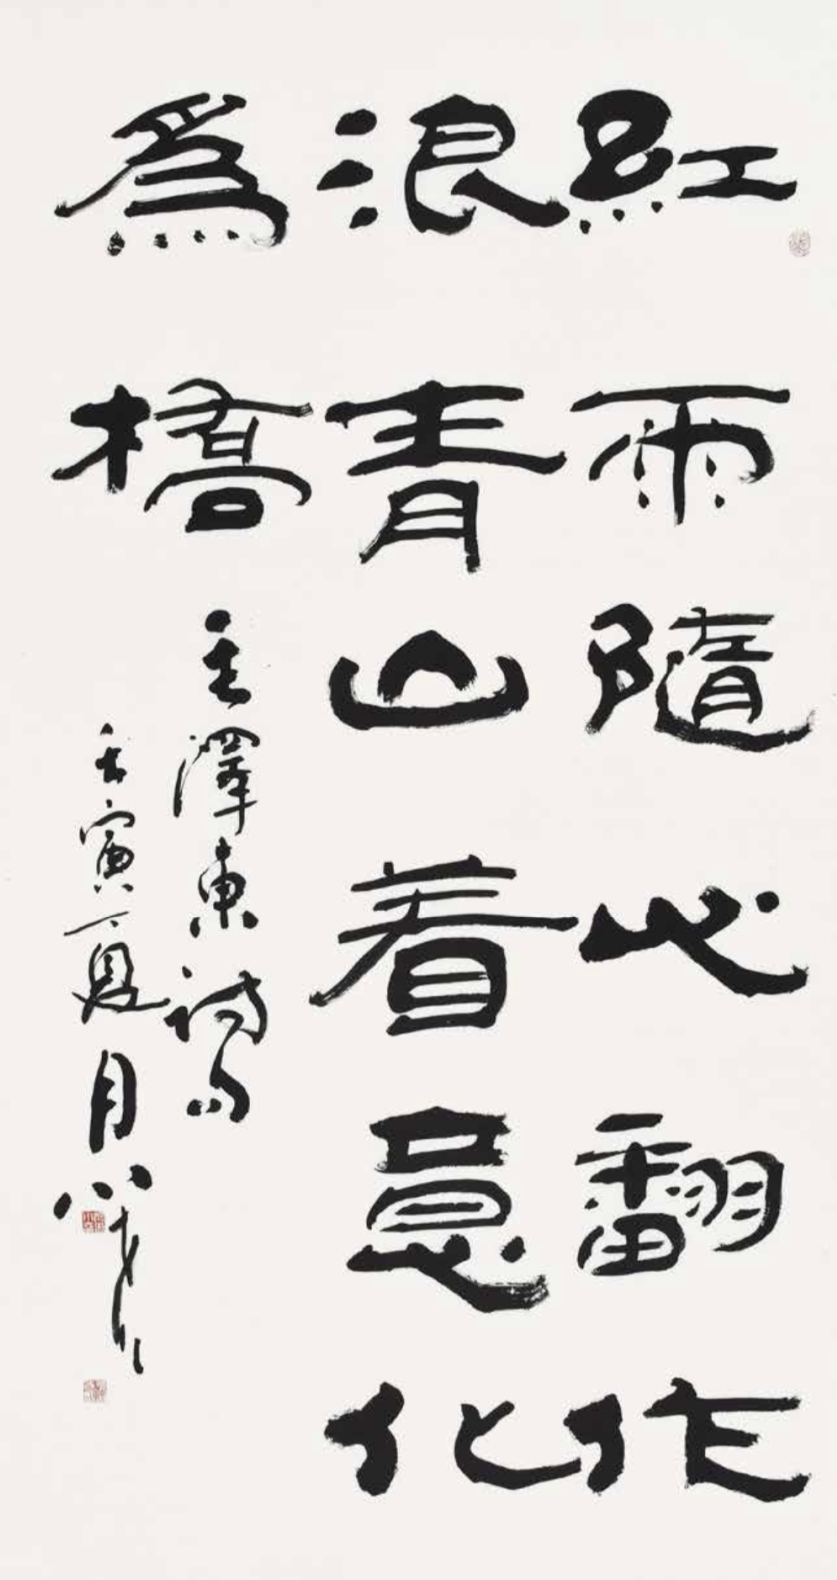 紅雨隨心翻作
浪青山着意化
為橋
毛澤東詩句
壬寅夏月